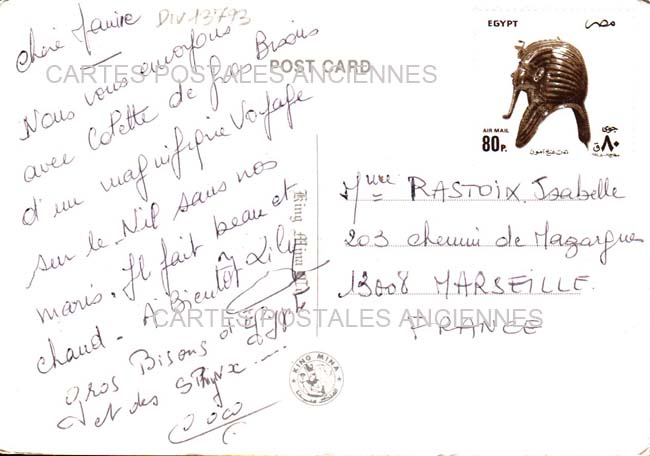 Div13793
Chère
Nous vous envoyons
avec Colette de gros Bisous
d'un magnifique Voyage
sur le Nil sans nos
maris. Il fait beau et
chaud. A Bientôt Lily
Gros Bisous
et des Sphynx ....
Coco
CARTES POSTALES ANCIENNES
CARTES POSTALES ANCIENNES
POST CARD
King Mina
KING MINA
EGYPT مصر
AIR MAIL
80P.
جوى
٨٠ ق
توت عنخ آمون
Mme RASTOIX Isabelle
203 chemin de Mazargues
13008 MARSEILLE
FRANCE